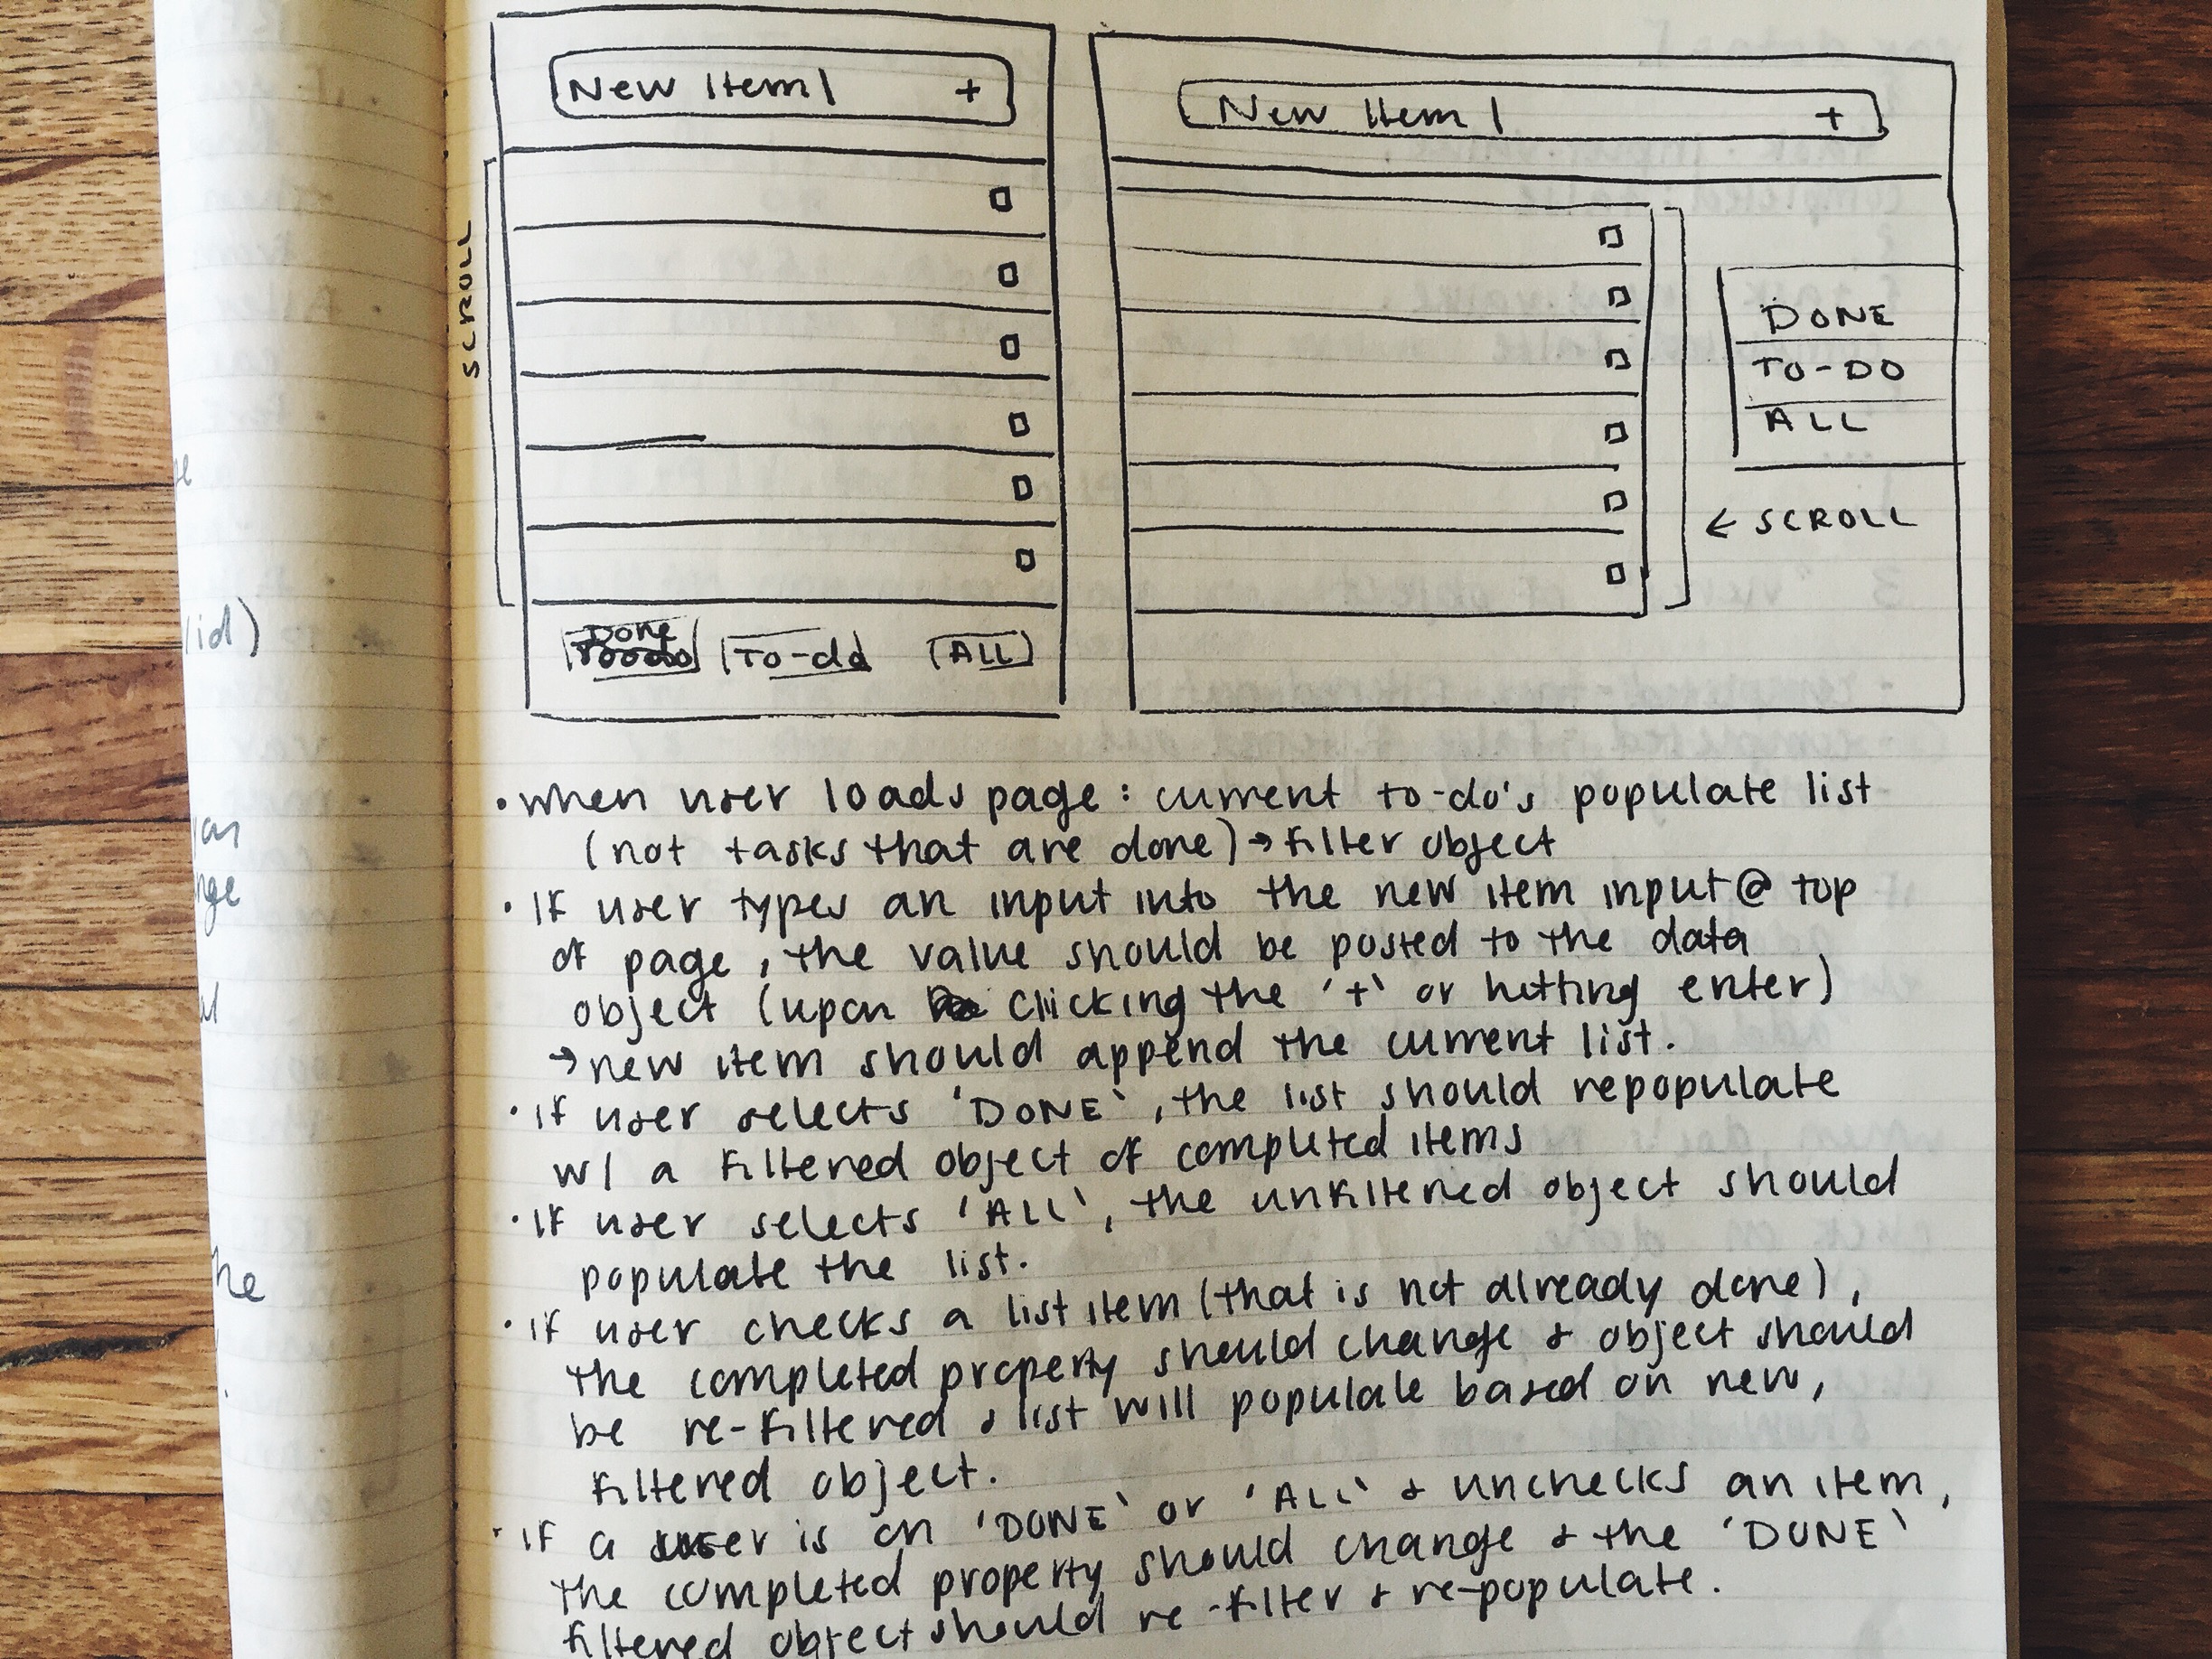 New Item|
+
SCROLL
Done
To-do
ALL
New Item |
+
DONE
TO-DO
ALL
← SCROLL
• when user loads page: current to-do's populate list
(not tasks that are done) → filter object
• If user types an input into the new item input @ top
of page, the value should be posted to the data
object (upon clicking the '+' or hitting enter)
→ new item should append the current list.
• if user selects 'DONE', the list should repopulate
w/ a filtered object of completed items
• If user selects 'ALL', the unfiltered object should
populate the list.
• if user checks a list item (that is not already done),
the completed property should change & object should
be re-filtered & list will populate based on new,
filtered object.
• If a user is on 'DONE' or 'ALL' & unchecks an item,
the completed property should change & the 'DONE'
filtered object should re-filter & re-populate.
/id)
nge
he